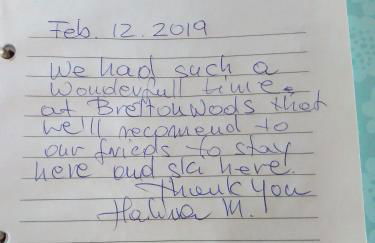 Feb. 12. 2019
We had such a
wonderfull time
at Bretton Woods that
we'll recommend to
our frieds to stay
here and ski here!
Thank you
Halina M.